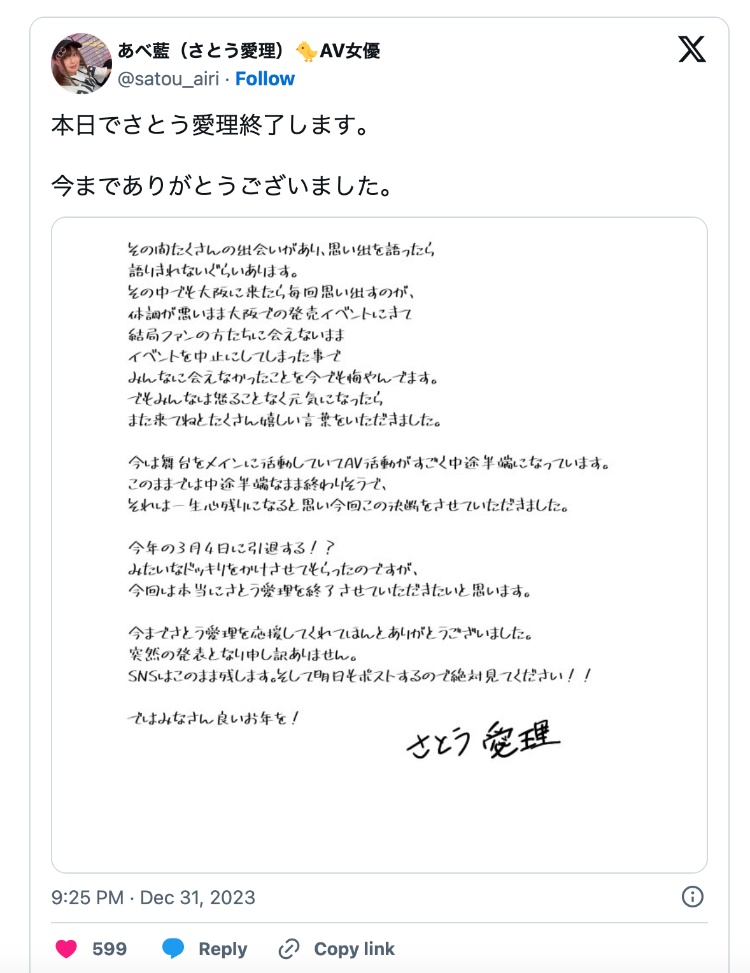 あべ藍（さとう愛理）🐤AV女優
@satou_airi · Follow
本日でさとう愛理終了します。
今までありがとうございました。
その間たくさんの出会いがあり、思い出を語ったら
語りきれないぐらいあります。
その中でも大阪に来たら毎回思い出すのが、
体調が悪いまま大阪での発売イベントにきて
結局ファンの方たちに会えないまま
イベントを中止にしてしまった事で
みんなに会えなかったことを今でも悔やんでます。
でもみんなは怒ることなく元気になったら
また来てねとたくさん嬉しい言葉をいただきました。
今は舞台をメインに活動していてAV活動がすごく中途半端になっています。
このままでは中途半端なまま終わりそうで、
それは一生心残りになると思い今回この決断をさせていただきました。
今年の3月4日に引退する！？
みたいなドッキリをかけさせてもらったのですが、
今回は本当にさとう愛理を終了させていただきたいと思います。
今までさとう愛理を応援してくれてほんとありがとうございました。
突然の発表となり申し訳ありません。
SNSはこのまま残します。そして明日もポストするので絶対見てください！！
ではみなさん良いお年を！
さとう愛理
9:25 PM · Dec 31, 2023
599 Reply Copy link